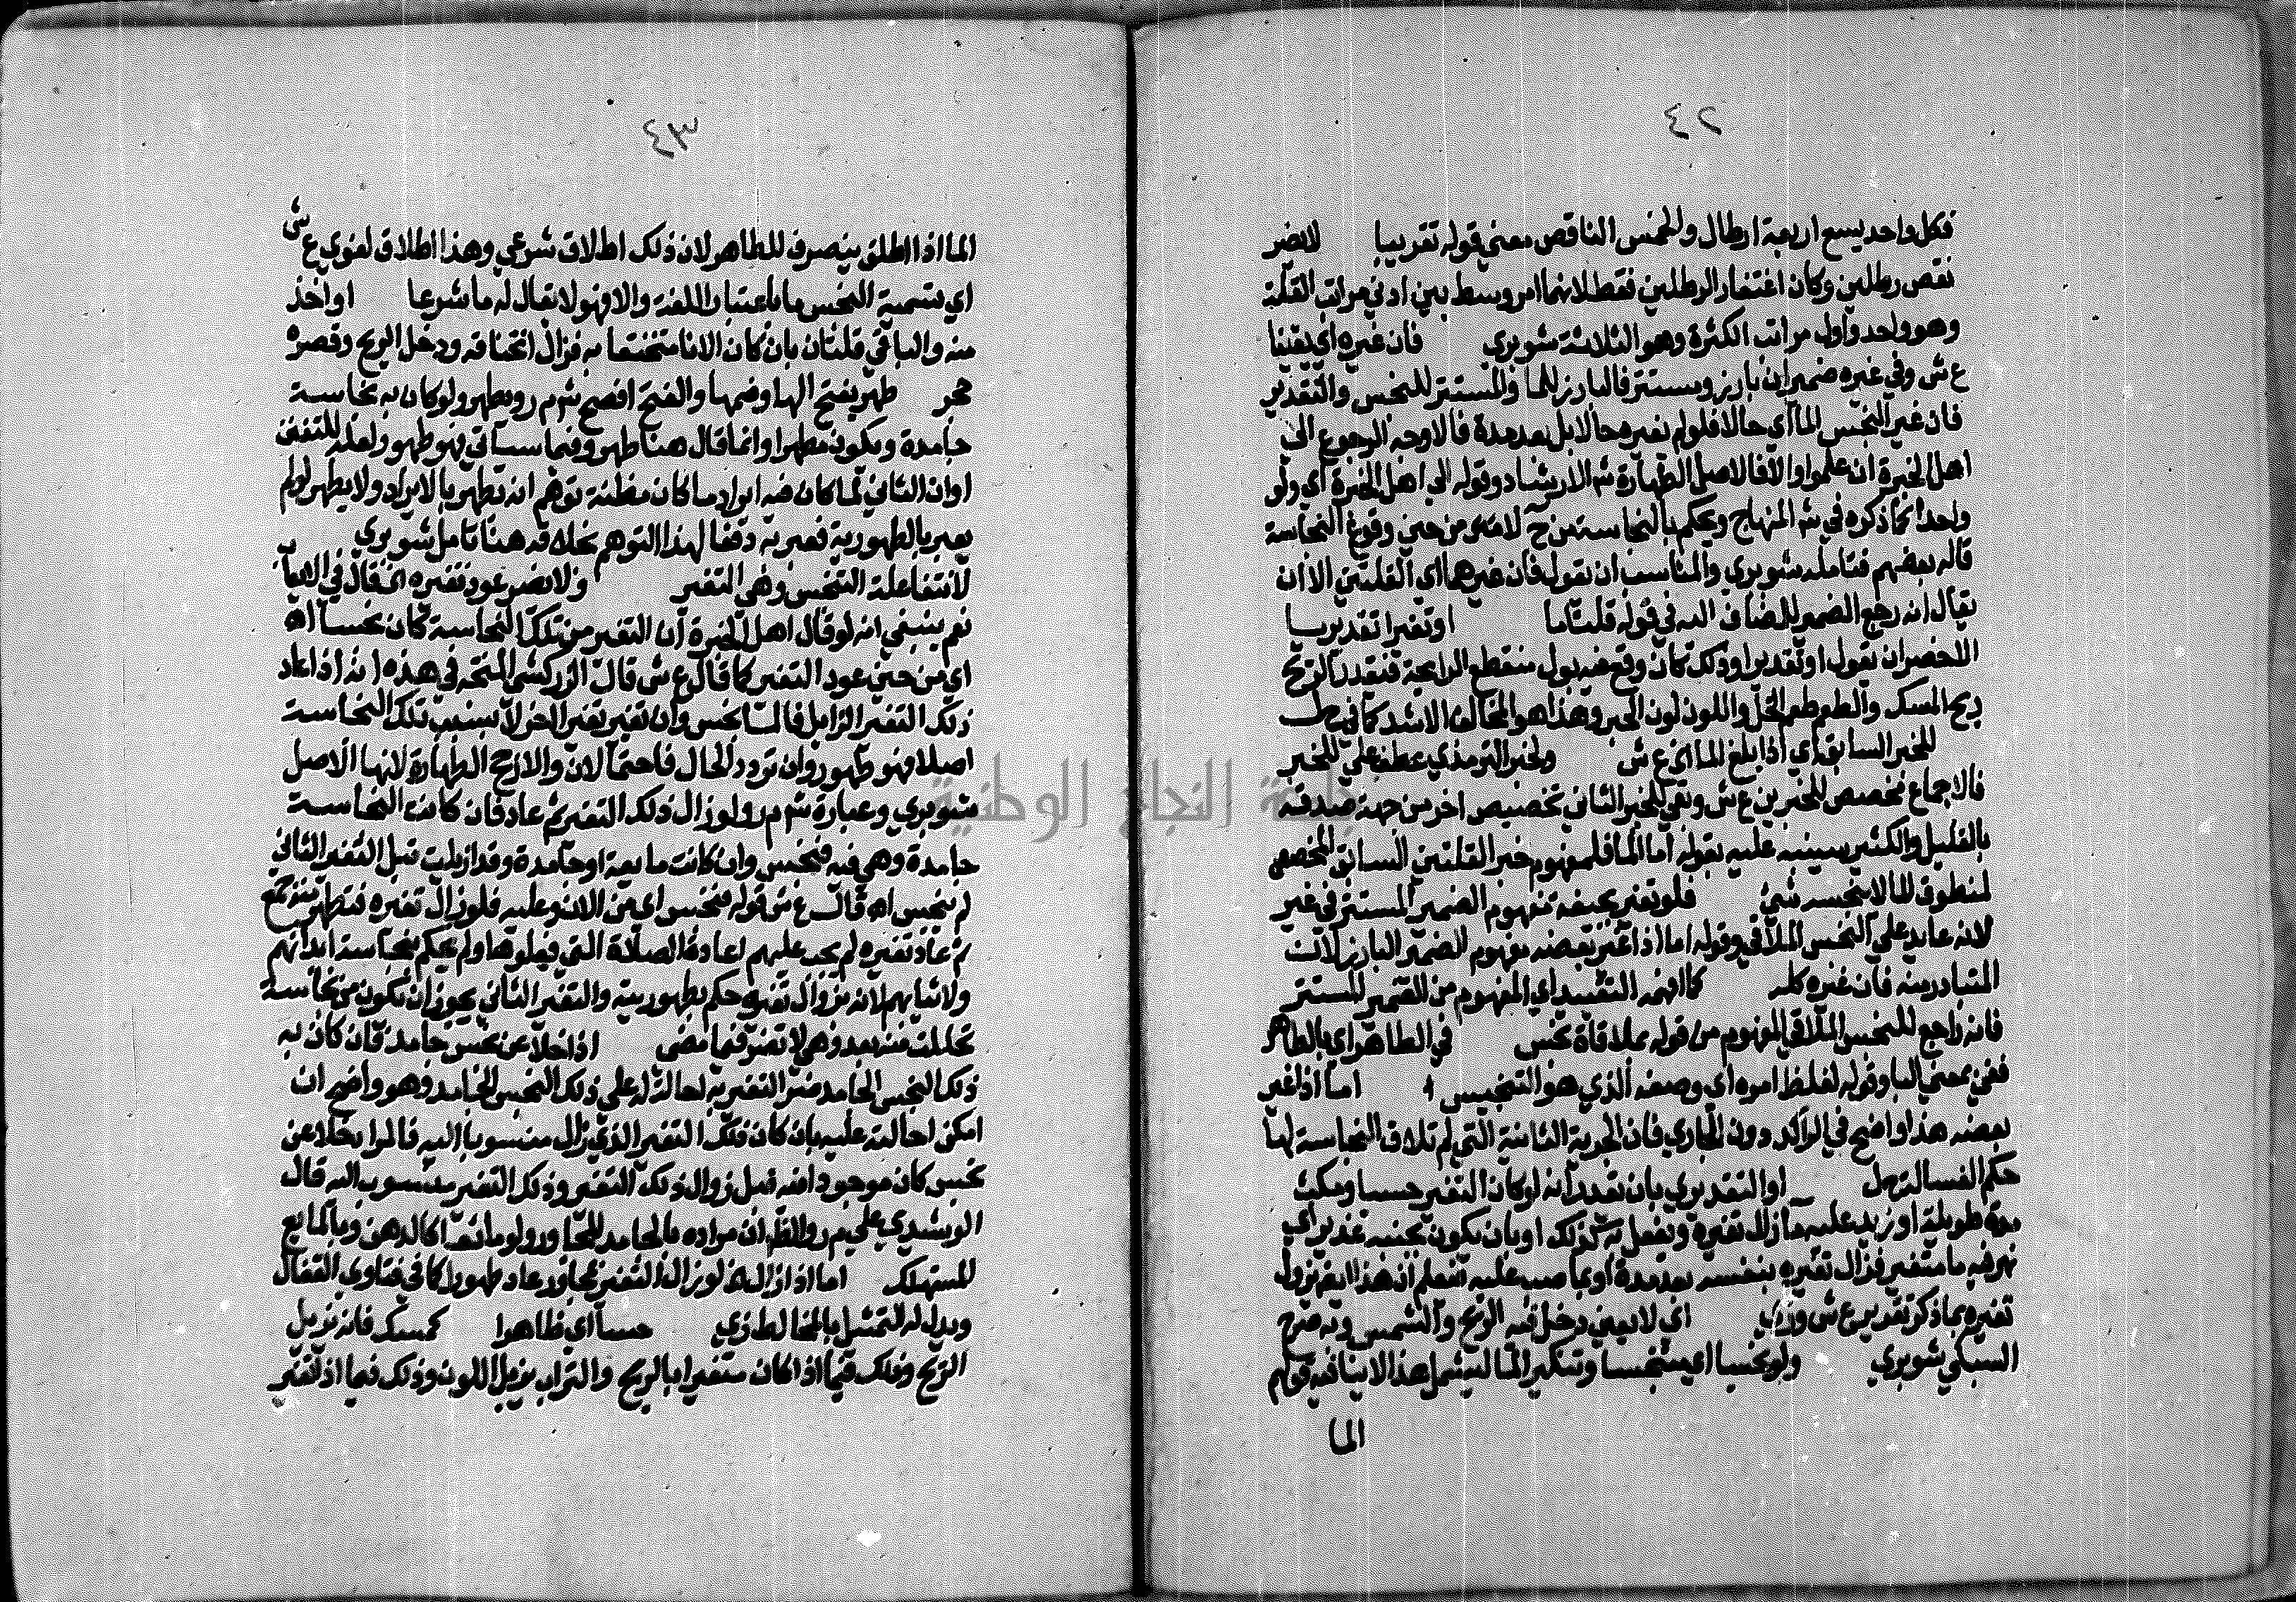 ٤٢
فكل واحد يسع اربعة ارطال وللخمس الناقص معني قوله تقريبا لايضر
نقص رطلين وكان اغتفار الرطلين فقط لانهما امر وسط بين ادني مراتب القلة
وهو واحد واول مراتب الكثرة وهو الثلاثة شوبري فان غيره اي يقينا
ع ش وفي غيره ضميران بارز ومستتر فالبارز للما والمستتر للنجس والتقدير
فان غير النجس الما اي حالا فلو لم يغيره حالا بل بعد مدة فالاوجه الرجوع الي
اهل الخبرة ان علموا والا فالاصل الطهارة شم الارشاد وقوله الي اهل الخبرة اي ولو
واحدا كما ذكره في شم المنهاج ويحكم بالنجاسة من ح لامن من حين وقوع النجاسة
قاله بعضهم فتامله شوبري والمناسب ان يقول فان غيرهما اي القلتين الا ان
يقال انه رجع الضمير للمضاف اليه في قوله قلتا ما او تغيرا تقديريا
اللخصر ان يقول او تقديرا وذلك كان وقع فيه بول منقطع الرايحة فنقدر الريح
ريح المسك والطعم طعم الخل واللون لون الحبر وهذا هو المخالف الاشد كما في ح ل
للخبر السابق اي اذا بلغ الما الخ ع ش ولخبر الترمذي عطف علي للخبر
فالاجماع مخصص للخبرين ع ش وبقي للخبر الثاني تخصيص اخر من جهة صدقه
بالقليل والكثير سينبه عليه بقوله اما الما فلمفهوم خبر القلتين السابق المخصص
لمنطوق الما لا ينجسه شي فلو تغير بجيفة مفهوم الضمير المستتر في غير
لانه عايد علي النجس الملاقي وقوله اما اذا غير بعضه مفهوم الضمير البارز لان
المتبادر منه فان غيره كله كما افهمه التقييد اي المفهوم من الضمير المستتر
فانه راجع للنجس الملاقي المفهوم من قوله بملاقاة نجس في الطاهر اي بالطاهر
ففي بمعني البا وقوله لغلظ امره اي وصفه الذي هو التنجيس اما اذا غير
بعضه هذا واضح في الراكد دون الجاري فان الجرية الثانية التي لم تلاق النجاسة لها
حكم الغسالة ح ل او التقديري بان نقدر انه لو كان التغير حسيا ومكث
مدة طويلة او زيد عليه ما زال تغيره ويفعل به كذلك او بان يكون بجنبه غدير اي
نهر فيه ما متغير فزال تغيره بنفسه بعد مدة او بما صب عليه فنعلم ان هذا ايضا يزول
تغيره بما ذكر تقديرا ع ش وزي اي لا بعين دخل فيه الريح والشمس وبه صرح
السبكي شوبري ولو نجسا اي متنجسا وتنكير الما ليشمل هذا لا ينافيه قولهم
الما
٤٣
الما اذا اطلق ينصرف للطاهر لان ذلك اطلاق شرعي وهذا اطلاق لغوي ع ش
اي تسمية النجس ما باعتبار اللغة والا فهو لا يقال له ما شرعا او اخذ
منه والباقي قلتان بان كان الانا منخنقا به فزال انخناقه ودخل الريح وقصره
حجر طهر بفتح الها وضمها والفتح افصح شم م ر ويطهر ولو كان به نجاسة
جامدة ويكون مطهرا وانما قال هنا طهر وفيما سياتي فهو طهور لعله للتفنن
او ان الثاني لما كان فيه ايراد ما كان مظنة توهم انه يطهر بالايراد ولا يطهر لو لم
يعبر بالطهورية فعبر به دفعا لهذا التوهم بخلافه هنا تامل شوبري
لانتفا علة التنجس وهي التغير ولا يضر عود تغيره الخ قال في الايعاب
نعم ينبغي انه لو قال اهل الخبرة ان التغير من تلك النجاسة كان نجسا اه
اي من حين عود التغير كما قال ع ش قال الزركشي المتجه في هذه انه اذا عاد
ذلك التغير الزايل فالما نجس وان تغير بغير اخر لا بسبب تلك النجاسة
اصلا فهو طهور وان تردد الحال فاحتمالان والارجح الطهارة لانها الاصل
شوبري وعبارة شم م ر ولو زال ذلك التغير ثم عاد فان كانت النجاسة
جامدة وهي فيه فنجس وان كانت مايعة او جامدة وقد ازيلت قبل التغير الثاني
لم ينجس اه قال ع ش قوله فنجس اي من الان وعليه فلو زال تغيره فتطهر منه جمع
ثم عاد تغيره لم يجب عليهم اعادة الصلاة التي فعلوها ولم يحكم بنجاسة ابدانهم
ولا ثيابهم لانه بزوال تغيره حكم بطهوريته والتغير الثاني يجوز ان يكون من نجاسة
تحللت منه بعد وهي لا تضر فيما مضي اذا خلا عن نجس جامد فان كان به
ذلك النجس الجامد ضر التغير به احالة له علي ذلك النجس الجامد وهو واضح ان
امكن احالته عليه بان كان ذلك التغير الذي زال منسوبا اليه فالمراد بخلا عن
نجس كان موجودا فيه قبل زوال ذلك التغير وذلك التغير منسوب اليه قال
الرشيدي علي م ر والظ ان مراده بالجامد المجاور ولو مايعا كالدهن وبالمايع
المستهلك اما اذا زال لو زال التغير بمجاور عاد طهورا كما في فتاوي القفال
ويدل له التمثيل بالمخالط زي حسا اي ظاهرا كمسك فانه يزيل
الريح وذلك فيما اذا كان متغيرا بالريح والتراب يزيل اللون وذلك فيما اذا تغير
جامعة النجاح الوطنية